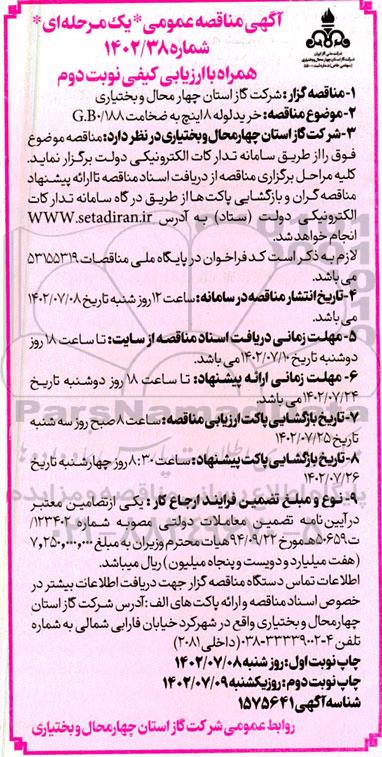 آگهی مناقصه عمومی *یک مرحله‌ای*
شماره ۱۴۰۲/۳۸
همراه با ارزیابی کیفی نوبت دوم
۱- مناقصه گزار: شرکت گاز استان چهارمحال و بختیاری
۲- موضوع مناقصه: خرید لوله ۸ اینچ به ضخامت ۰/۱۸۸ G.B
۳- شرکت گاز استان چهارمحال و بختیاری در نظر دارد: مناقصه موضوع
فوق را از طریق سامانه تدارکات الکترونیکی دولت برگزار نماید.
کلیه مراحل برگزاری مناقصه از دریافت اسناد مناقصه تا ارائه پیشنهاد
مناقصه گران و بازگشایی پاکت‌ها از طریق درگاه سامانه تدارکات
الکترونیکی دولت (ستاد) به آدرس WWW.setadiran.ir
انجام خواهد شد.
لازم به ذکر است کد فراخوان در پایگاه ملی مناقصات ۵۳۱۵۵۳۱۹
می باشد.
۴- تاریخ انتشار مناقصه در سامانه: ساعت ۱۲ روز شنبه تاریخ ۱۴۰۲/۰۷/۰۸
می باشد.
۵- مهلت زمانی دریافت اسناد مناقصه از سایت: تا ساعت ۱۸ روز
دوشنبه تاریخ ۱۴۰۲/۰۷/۱۰ می باشد.
۶- مهلت زمانی ارائه پیشنهاد: تا ساعت ۱۸ روز دوشنبه تاریخ
۱۴۰۲/۰۷/۲۴ می باشد.
۷- تاریخ بازگشایی پاکت ارزیابی مناقصه: ساعت ۸ صبح روز سه شنبه
تاریخ ۱۴۰۲/۰۷/۲۵
۸- تاریخ بازگشایی پاکت پیشنهاد: ساعت ۸:۳۰ روز چهارشنبه تاریخ
۱۴۰۲/۰۷/۲۶
۹- نوع و مبلغ تضمین فرایند ارجاع کار: یکی از تضامین معتبر
در آیین نامه تضمین معاملات دولتی مصوبه شماره ۱۲۳۴۰۲/
ت ۵۰۶۵۹ هـ مورخ ۹۴/۰۹/۲۲ هیات محترم وزیران به مبلغ ۷,۲۵۰,۰۰۰,۰۰۰
(هفت میلیارد و دویست و پنجاه میلیون) ریال میباشد.
اطلاعات تماس دستگاه مناقصه گزار جهت دریافت اطلاعات بیشتر در
خصوص اسناد مناقصه و ارائه پاکت های الف: آدرس شرکت گاز استان
چهارمحال و بختیاری واقع در شهرکرد خیابان فارابی شمالی به شماره
تلفن ۴-۰۳۸-۳۳۳۳۹۰۰۲ (داخلی ۲۰۸۱)
چاپ نوبت اول: روز شنبه ۱۴۰۲/۰۷/۰۸
چاپ نوبت دوم: روز یکشنبه ۱۴۰۲/۰۷/۰۹
شناسه آگهی ۱۵۷۵۶۴۱
روابط عمومی شرکت گاز استان چهارمحال و بختیاری